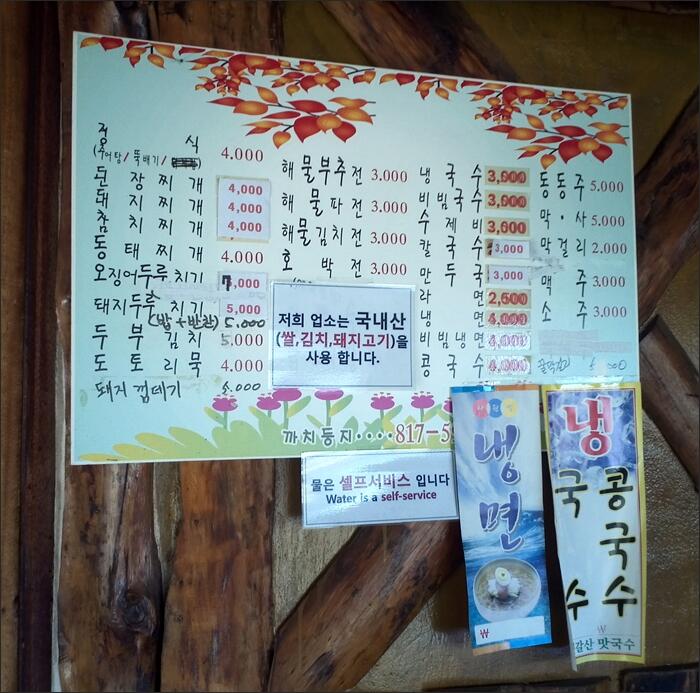 정 식 4.000
(추어탕/ 뚝배기/
된 장 찌 개 4,000
돼 지 찌 개 4,000
참 치 찌 개 4,000
동 태 찌 개 4.000
오징어두루치기 7,000
돼지두루치기 5,000
(밥+반찬) 5.000
두 부 김 치 5.000
도 토 리 묵 4.000
돼지 껍데기 5.000
해 물 부 추 전 3.000
해 물 파 전 3.000
해 물 김 치 전 3.000
호 박 전 3.000
냉 국 수
비 빔 국 수
수 제 비 3,600
칼 국 수 3,000
만 두 국 3,000
라 면
냉 면
비 빔 냉 면
콩 국 수
동 동 주 5.000
막 · 사 5.000
막 걸 리 2.000
맥 주 3.000
소 주 3.000
저희 업소는 국내산
(쌀,김치,돼지고기)을
사용 합니다.
까치둥지····817-5
물은 셀프서비스 입니다
Water is a self-service
냉면
₩
냉
콩국수
국수
₩
갈산 맛국수